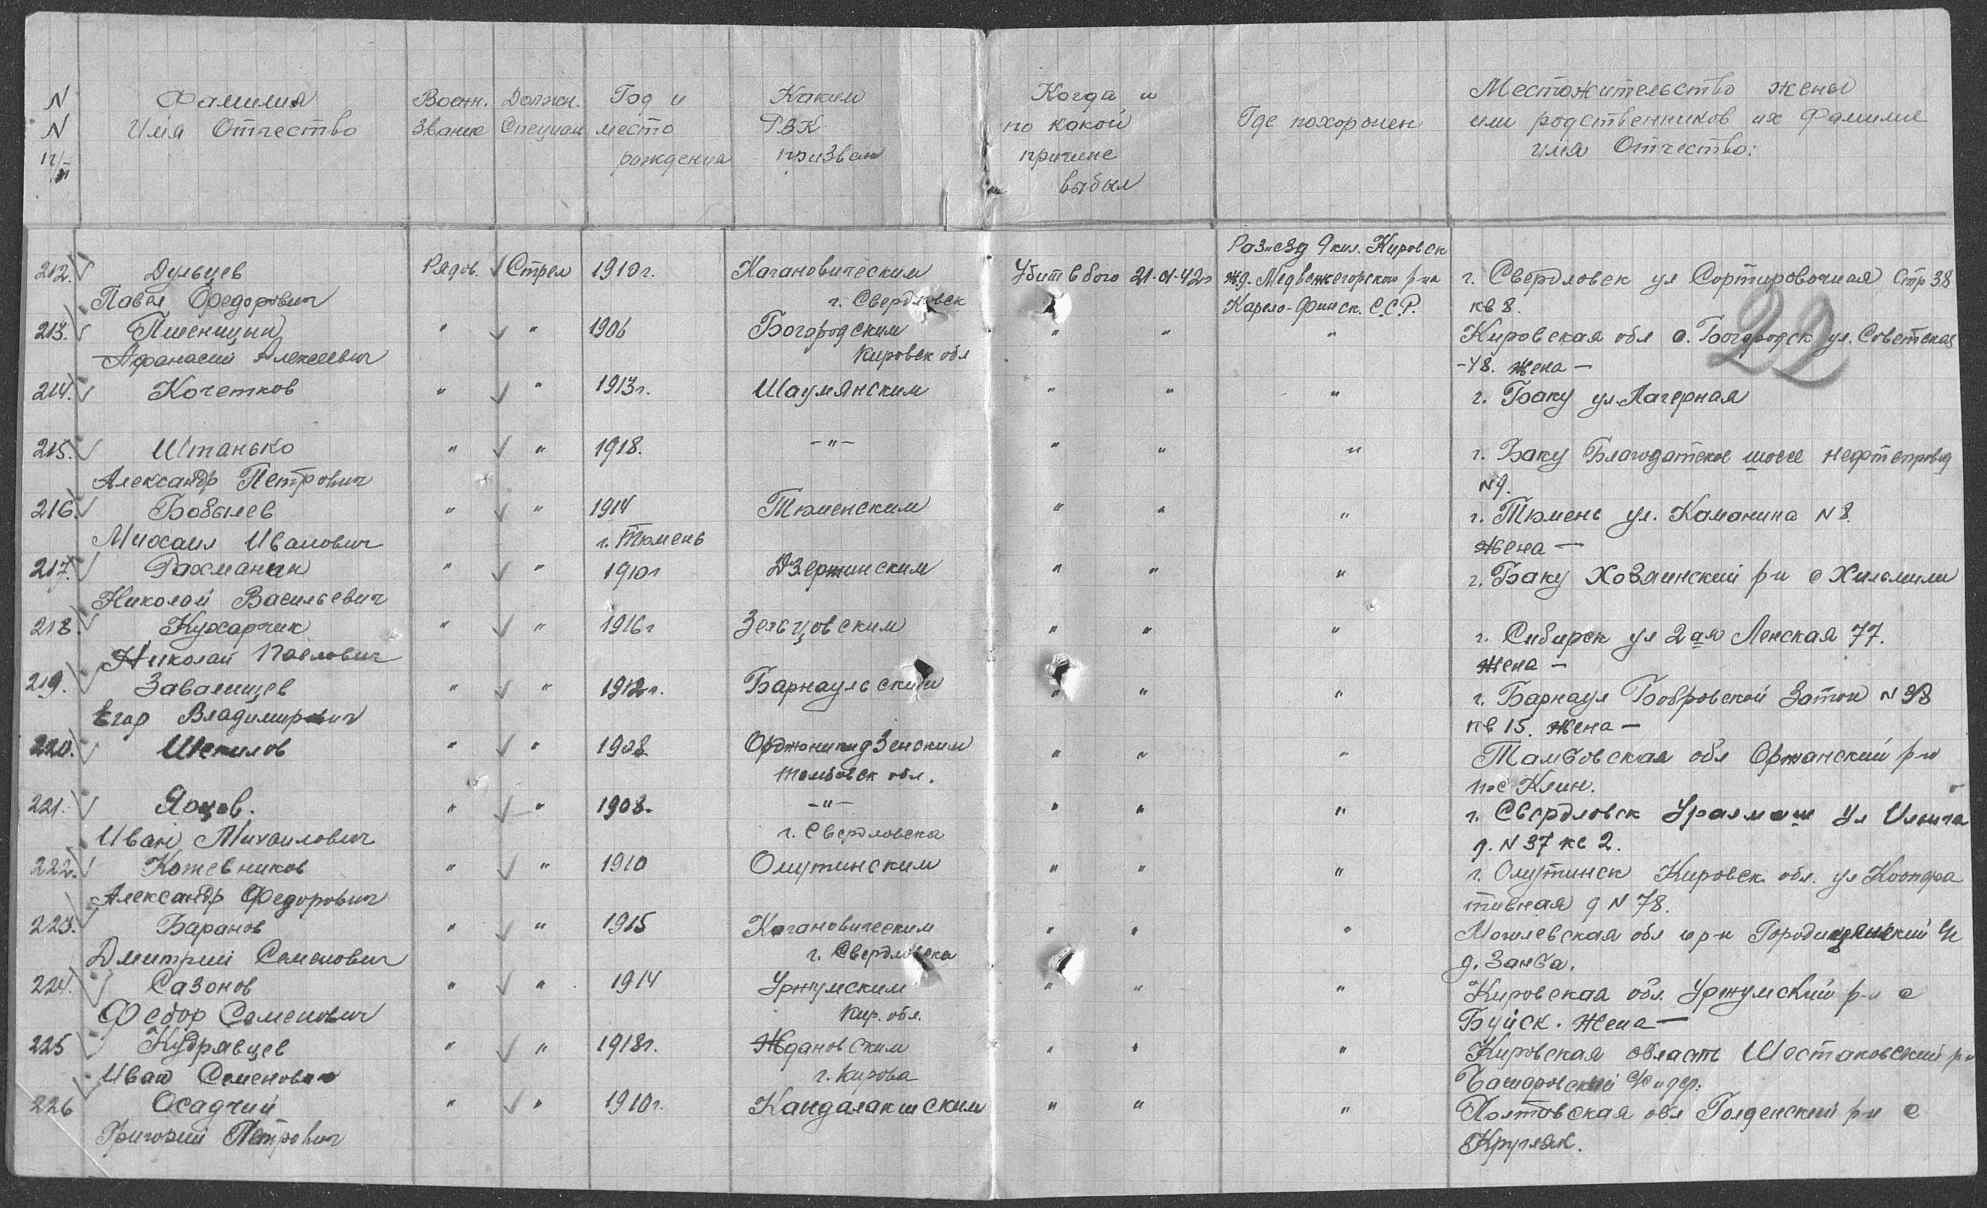 N Фамилия Воен. Должн. Год и Каким Когда и Местожительство жены
N Имя Отчество звание Специал место РВК по какой Где похоронен или родственников их Фамилие
п/п рождения призван причине имя Отчество:
выбыл
Раз'езд 9 км. Кировск
212. Дульцев Рядов. Стрел 1910г. Кагановическим Убит в бою 21-01-42г ж.д. Медвежегорского р-на г. Свердловск ул Сортировочная Стр 38
Павел Федорович г. Свердловск Карело-Финск. С.С.Р. кв 8.
213. Пшеницын " " 1906 Богородским " " " Кировская обл с. Богородск ул. Советская
Афанасий Алексеевич Кировск обл -48. жена —
22
214. Кочетков " " 1913г. Шаумянским " " " г. Баку ул. Лагерная
215. Штанько " " 1918. -"- " " " г. Баку Благодатское шоссе нефтепровод
Александр Петрович N9.
216. Бобылев " " 1914 Тюменским " " " г. Тюмень ул. Каманина N 8.
Михаил Иванович г. Тюмень жена —
217. Рахманин " " 1910г Дзержинским " " " г. Баку Хозаинский р-н с Хильмили
Николай Васильевич
218. Кухарчик " " 1916г " " " г. Сибирск ул 2ая Ленская 77.
Николай Павлович жена —
219. Завалищев " " 1912г. Барнаульским " " " г. Барнаул Бобровской Затон N 38
Егор Владимирович кв 15. жена —
220. Шипилов " " 1908 Орджоникидзенским " " " Тамбовская обл Оржанский р-н
Тамбовск обл. пос Клин.
221. Яоцов. " " 1908. -"- " " " г. Свердловск Уралмаш Ул Ильича
Иван Михаилович г. Свердловска д. N 37 кв 2.
222. Кожевников " " 1910 Омутинским " " " г. Омутинск Кировск. обл. ул Коопера
Александр Федорович тивная д N 78.
223. Баранов " " 1915 Кагановическим " " " Могилевская обл
Дмитрий Семенович г. Свердловска д. Занва.
224. Сазонов " " 1914 Уржумским " " " Кировская обл. Уржумский р-н с
Федор Семенович Кир. обл. Буйск. Жена —
225 Кудрявцев " " 1918г. Ждановским " " " Кировская область Шестаковский р-н
Иван Семенович г. Кирова
226 Осадчий " " 1910г. Кандалакшским " " " Полтавская обл р-н с
Григорий Петрович Кругляк.